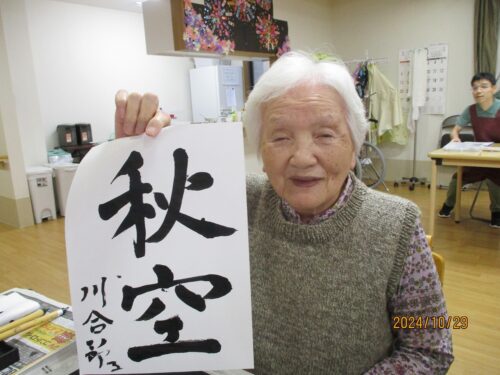 秋空
川合
2024/10/29